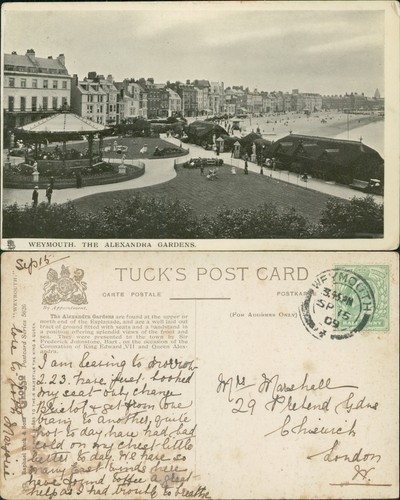 WEYMOUTH. THE ALEXANDRA GARDENS.
Sep 15
TUCK'S POST CARD
CARTE POSTALE
POSTKARTE
(FOR ADDRESS ONLY)
The Alexandra Gardens are found at the upper or
north end of the Esplanade, and are a well laid out
tract of ground fitted with seats and a bandstand in
a position offering splendid views of the front and
sea. They were presented to the town by Sir
Frederick Johnstone, Bart., on the occasion of the
Coronation of King Edward VII and Queen Alex-
WEYMOUTH
3.45 PM
SP 15
09
I am leaving to morrow
2.23. have just booked
my seat out, change
Bristol & get from one
to another, quite
hot to day, have had bad
cold on my chest little
better to day. We have so
many East winds here
have found Coffee a great
help as I had trouble to breathe
Mrs Marshall
29
Chiswick
London
W.